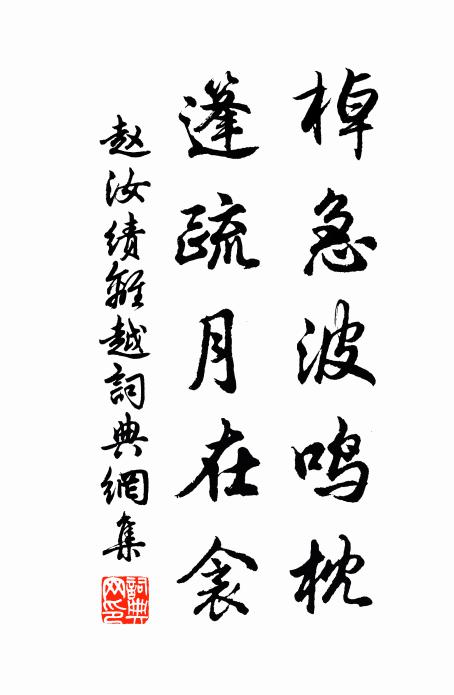 棹急波鸣枕
篷疏月在衾
赵汝绩離越詞典網集
詞典網印